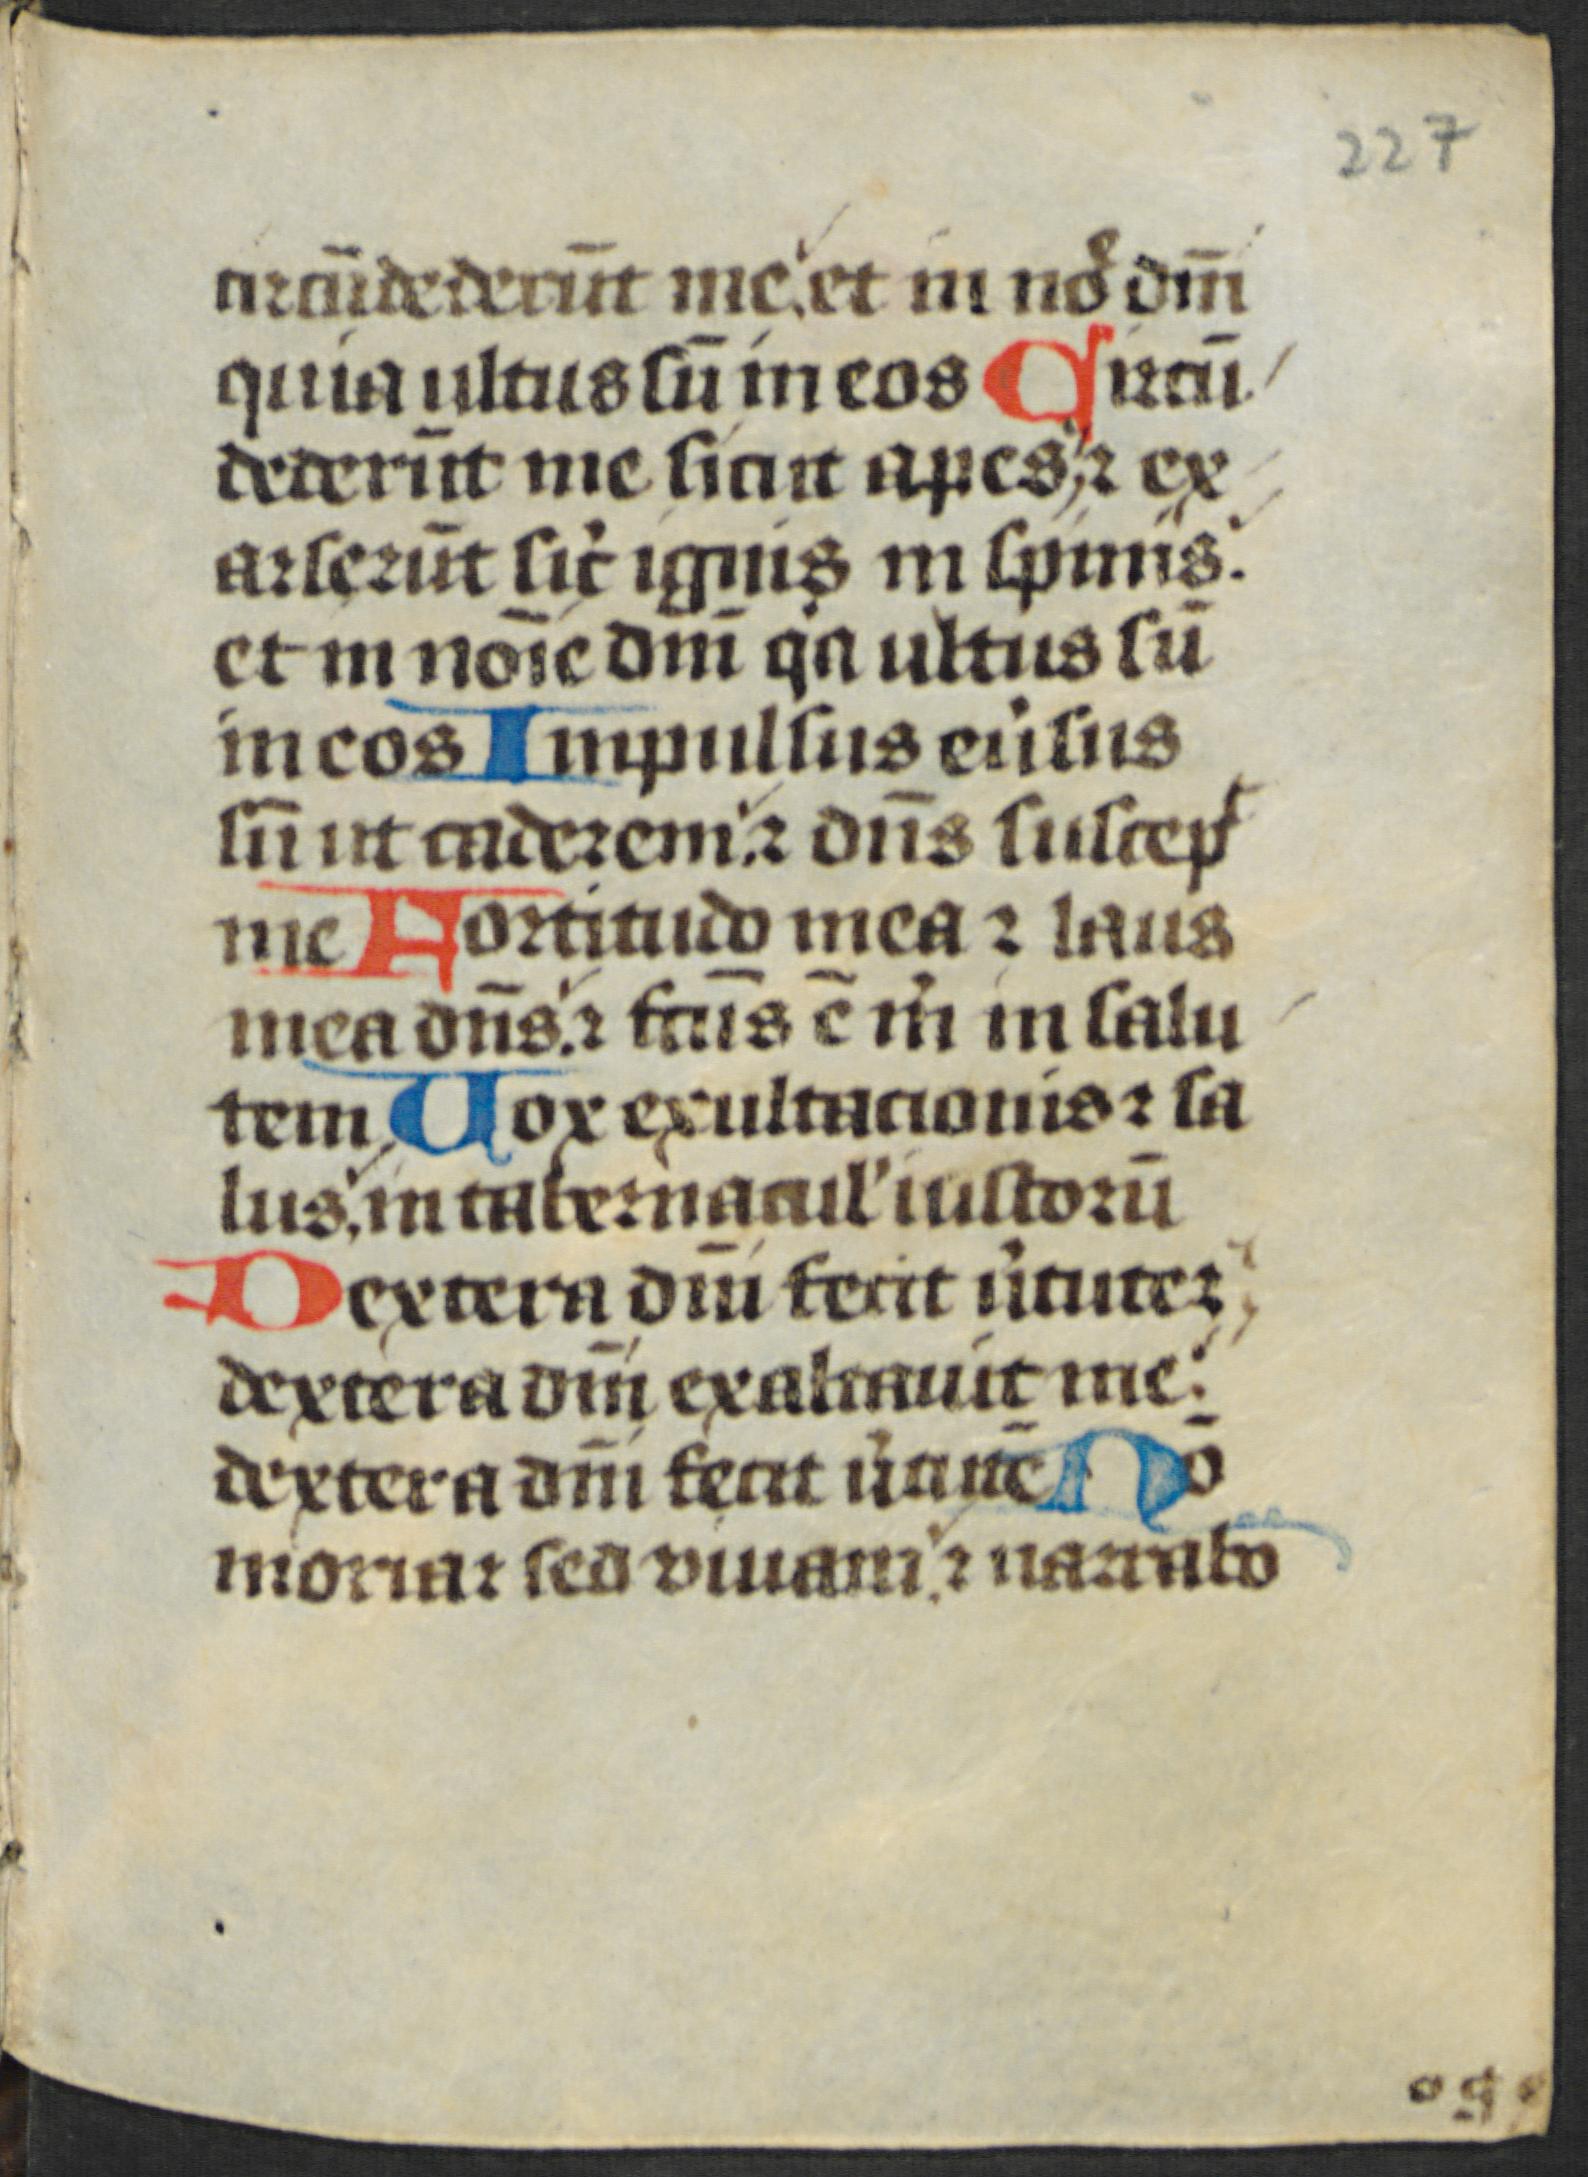 227
circū̄dederūt me. et in noͤ dm̄
quia ultus sū in eos Circū
dederūt me sicut apes. ⁊ ex
arserūt sic̉ ignis in spinis.
et in noīe dm̄ qͥa ultus sū
in eos Impulsus eu̓sus
sū ut caderem. ⁊ dn̄s suscepͭ
me Fortitudo mea ⁊ laus
mea dn̄s. ⁊ fc̄us ē m̓ in salu
tem Uox exultacionis ⁊ sa
lus. in tabernacul̓ iustorū
Dextera dn̄i fecit u̓tutez
dextera dn̄i exaltauit me:
dextera dn̄i fecit u̓tutē Nō
moriar sed viuam. ⁊ narrabo